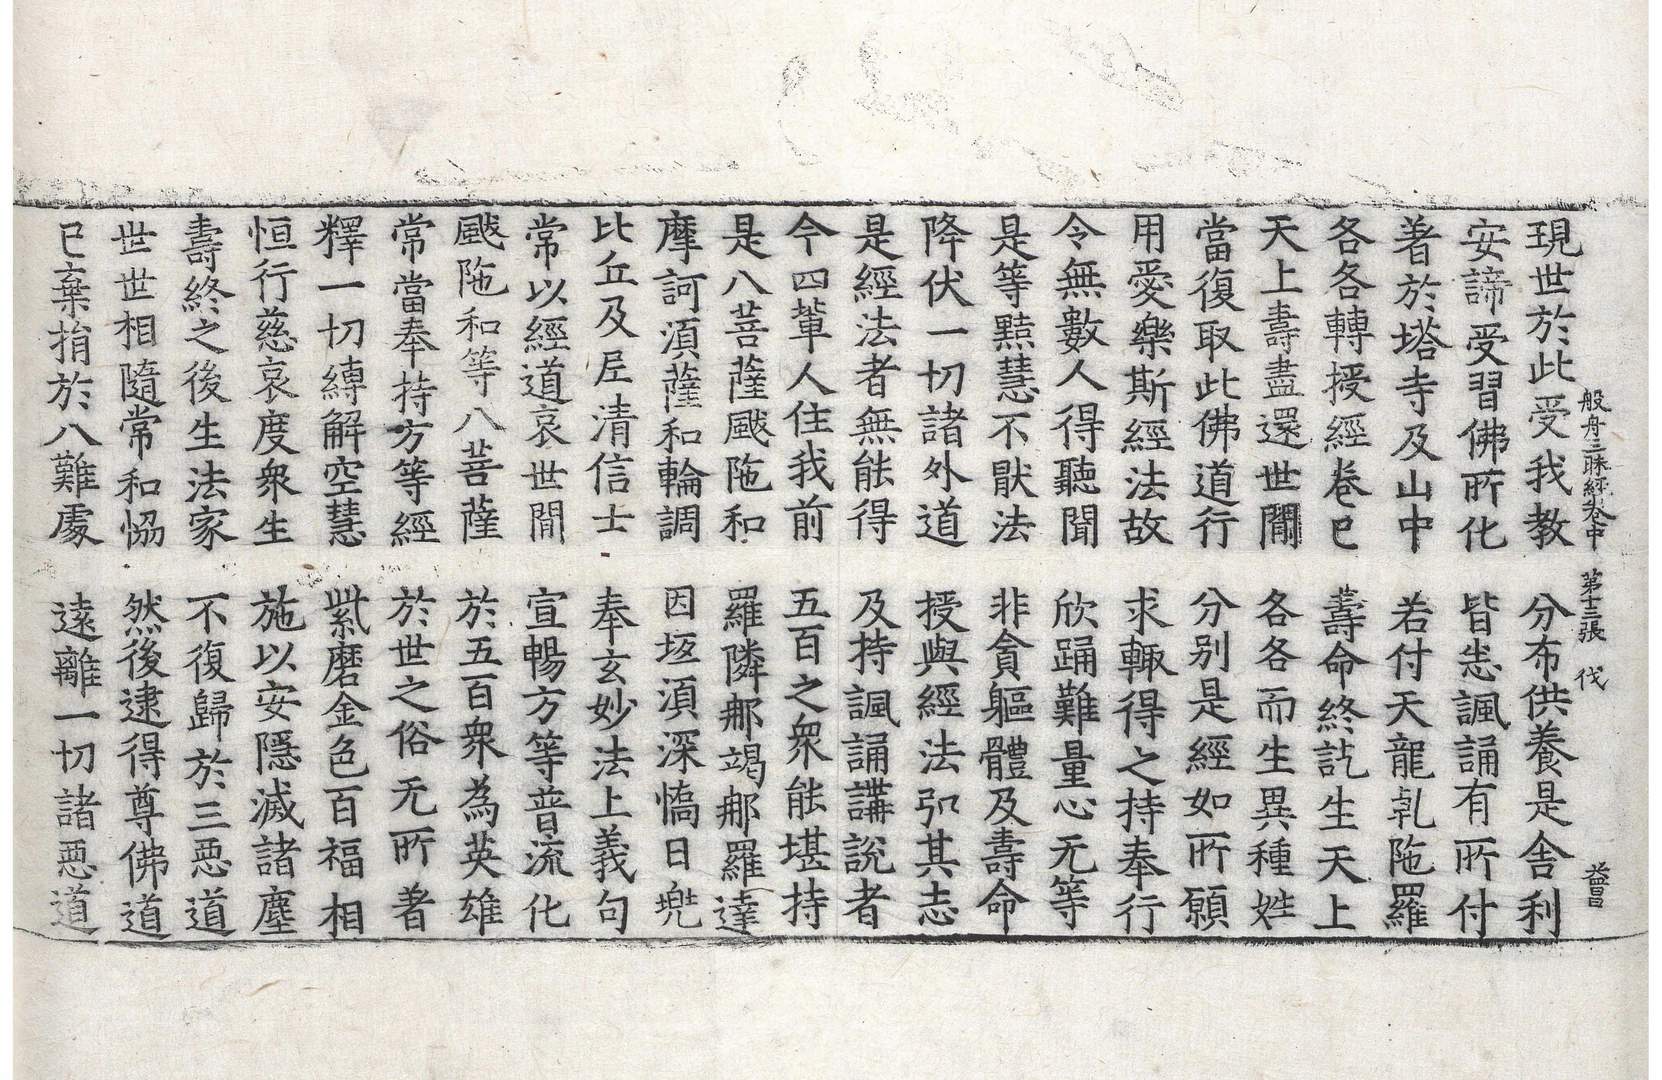 般舟三昧經卷中 第十三張 伐
現世於此受我教 分布供養是舍利
安諦受習佛所化 皆悉諷誦有所付
著於塔寺及山中 若付天龍乹陁羅
各各轉授經卷已 壽命終訖生天上
天上壽盡還世閒 各各而生異種姓
當復取此佛道行 分别是經如所願
用愛樂斯經法故 求輙得之持奉行
令無數人得聽聞 欣踊難量心无等
是等黠慧不猒法 非貪軀體及壽命
降伏一切諸外道 授與經法弘其志
是經法者無能得 及持諷誦講說者
今四輩人住我前 五百之衆能堪持
是八菩薩颰陁和 羅隣那竭那羅達
摩訶須薩和輪調 因坻須深憍日兜
比丘及尼清信士 奉玄妙法上義句
常以經道哀世閒 宣暢方等普流化
颰陁和等八菩薩 於五百衆為英雄
常當奉持方等經 於世之俗无所著
釋一切縛解空慧 紫磨金色百福相
恒行慈哀度衆生 施以安隱滅諸塵
壽終之後生法家 不復歸於三惡道
世世相隨常和恊 然後逮得尊佛道
已棄捐於八難處 遠離一切諸惡道